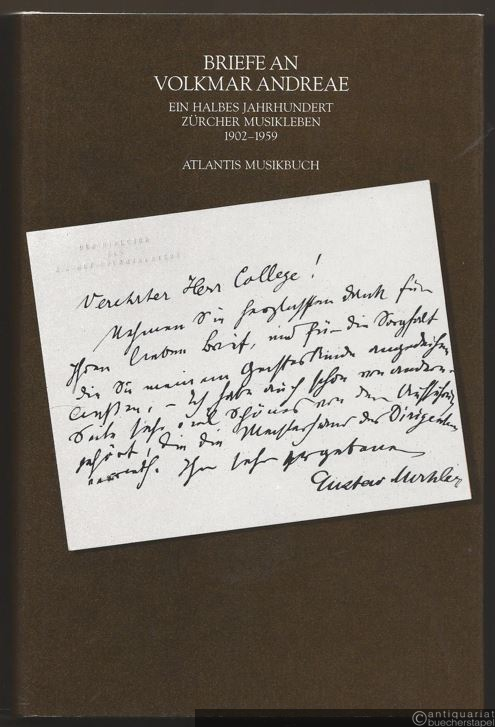 BRIEFE AN
VOLKMAR ANDREAE
EIN HALBES JAHRHUNDERT
ZÜRCHER MUSIKLEBEN
1902–1959
ATLANTIS MUSIKBUCH
Verehrter Herr College!
Nehmen Sie herzlichsten Dank für
Ihren lieben Brief, und für die Sorgfalt
die Sie meinem Geisteskinde angedeihen
ließen. – Ich habe auch schon von anderer
Seite sehr viel Schönes von der Aufführung
gehört, die die Meisterhand des Dirigenten
verrieth. Ihr sehr ergebener
Gustav Mahler
antiquariat
buecherstapel